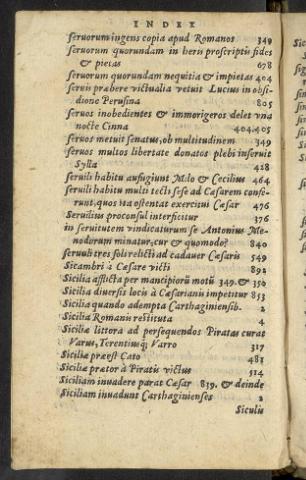 INDEX
seruorum ingens copia apud Romanos 349
seruorum quorundam in heris proscriptis fides
& pietas 678
seruorum quorundam nequitia & impietas 404
seruis præbere victualia vetuit Lucius in obsi-
dione Perusina 805
seruos inobedientes & immorigeros delet vna
nocte Cinna 404.405
seruos metuit senatus, ob multitudinem 349
seruos multos libertate donatos plebi inseruit
Sylla 428
seruili habitu aufugiunt Milo & Cecilius 464
seruili habitu multi tecti sese ad Cæsarem confe-
runt, quos ita ostentat exercitui Cæsar 476
Seruilius proconsul interficitur 376
in seruitutem vindicaturum se Antonius Me-
nodorum minatur, cur & quomodo? 840
seruuli tres soli relicti ad cadauer Cæsaris 549
Sicambri à Cæsare victi 892
Sicilia afflicta per mancipiorũ motũ 349.& 350
Sicilia diuersis locis à Cæsarianis impetitur 853
Sicilia quando adempta Carthaginiensib. 2
Sicilia Romanis restituta 4
Siciliæ littora ad persequendos Piratas curat
Varus, Terentiusq; Varro 317
Siciliæ præest Cato 481
Siciliæ prætor à Piratis victus 514
Siciliam inuadere parat Cæsar 839. & deinde
Siciliam inuadunt Carthaginenses 2
Siculis